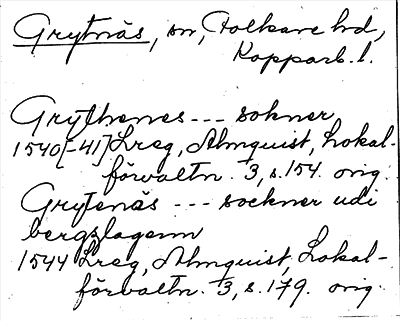 Grytnäs, sn, Folkare hd,
Kopparb. l.
Grythenes --- sokner
1540[-41] Lreg, Almquist, Lokal-
förvaltn. 3, s. 154. orig.
Grytenäs --- sockner udi
bergzlagenn
1544 Lreg, Almquist, Lokal-
förvaltn. 3, s. 179. orig.